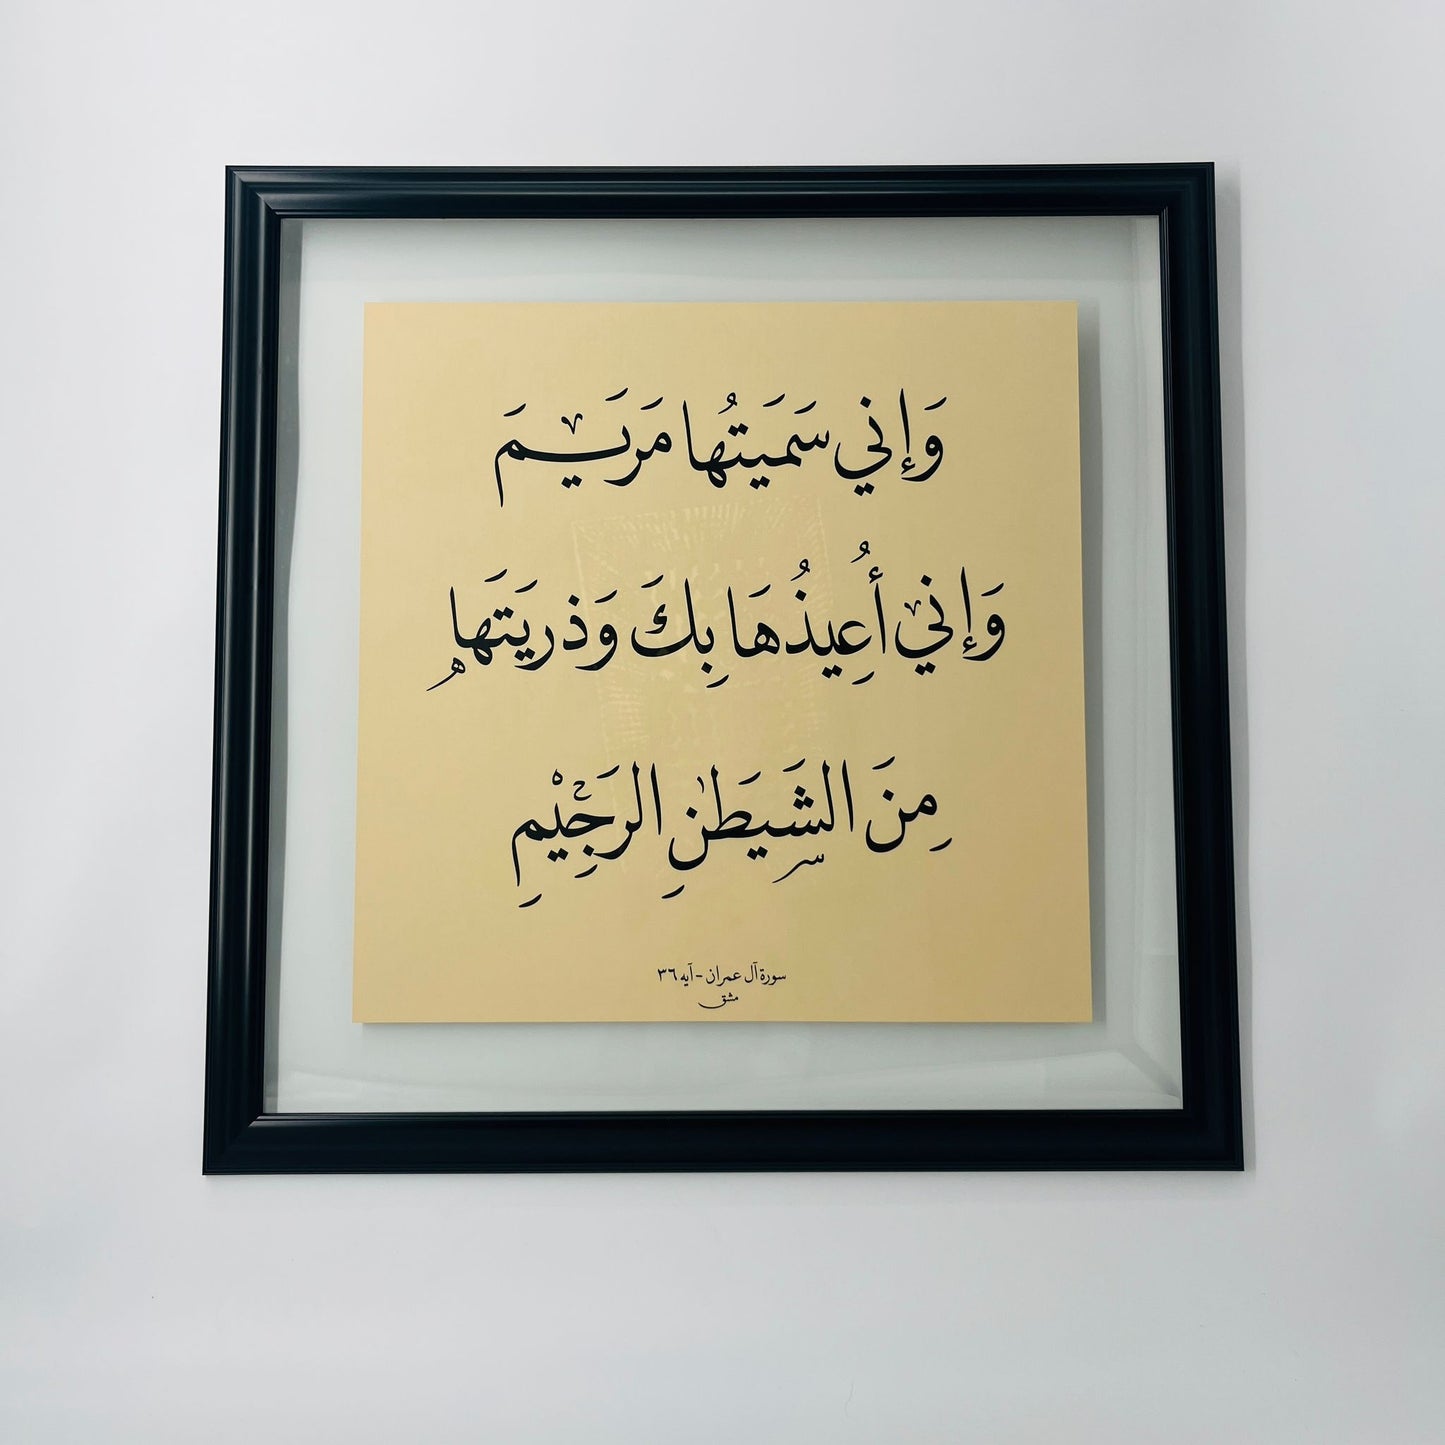 وَإني سَمَيَتُها مَريَـمَ
وَإني أُعِيذُهَا بِكَ وَذريَتَها
مِنَ الشَيطَٰنِ الرَجِيْمِ
سورة آل عمران - آيه ٣٦
مشق